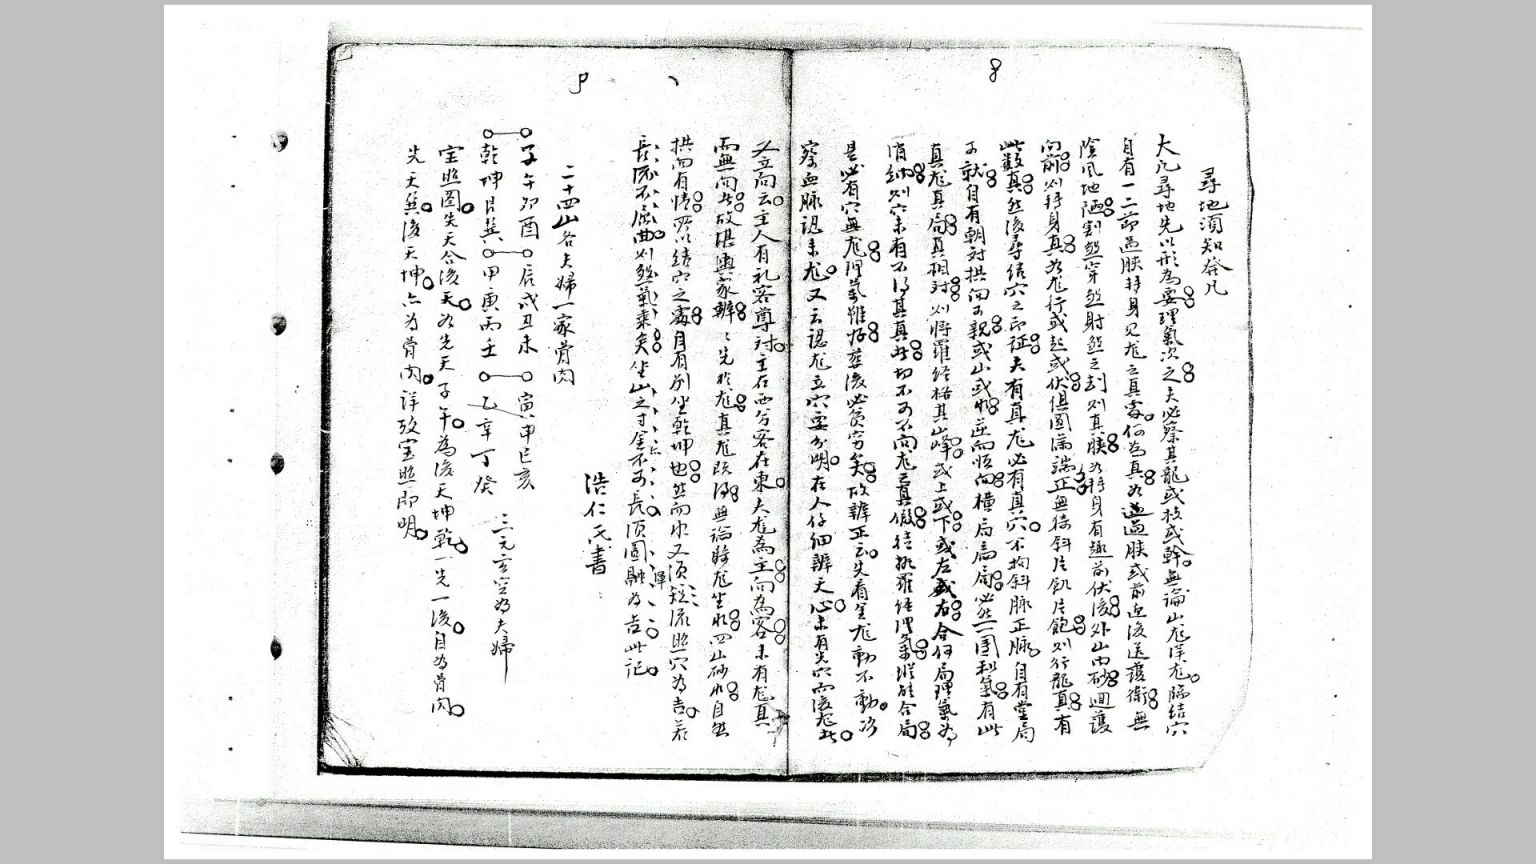 尋地須知發凡
大凡尋地先以形為要理氣次之夫必察其龍或枝或幹無論山尨洋尨臨結穴
自有一二節過脉轉身見尨之真處何為真如過脉或前迎後送護衛無
陰風地陋割然穿然射然之刦則真脉轉身有趣前伏後外山內砂迴護
向前則轉身真如尨行或起或伏俱圓滿端正無猗斜片飢片飽則行龍真有
此數真然後尋結穴之印証夫有真尨必有真穴不拘斜脉正脉自有堂局
可就自有朝对拱向可親或山或水逆而恒向橫局局必然一團和氣有此
真尨真局真相对則將羅經格其山峰或上或下或左或右合何局理氣為
消納則穴未有不得其真真此切不可不向尨之真假徒執羅經理氣縱能合局
是必有穴無尨理氣雖好葬後必貧窮矣故辨正云先看金尨動不動次
察血脉認來尨又云認尨立穴要分明在人仔細辨天心未有先穴而後尨者
又立向云主人有礼客尊对主在西兮客在東夫尨為主向為客未有尨真
而無向者故堪輿家辨〻先於尨真尨既得無論騎尨坐水四山砂水自然
拱向有情所以結穴之處自有別坐乾坤也然而水又須短流照穴為吉若
長流不屈曲則然氣乘矣坐山之寸金不可長須圓融為吉此記
浩仁氏書
二十四山各夫婦一家骨肉
子午卯酉 辰戌丑未 寅申巳亥
乾坤艮巽 甲庚丙壬 乙辛丁癸 三元玄空為夫婦
宝照圖先天合後天如先天子午為後天坤乾一先一後自為骨肉
先天巽後天坤亦為骨肉詳攷宝照即明